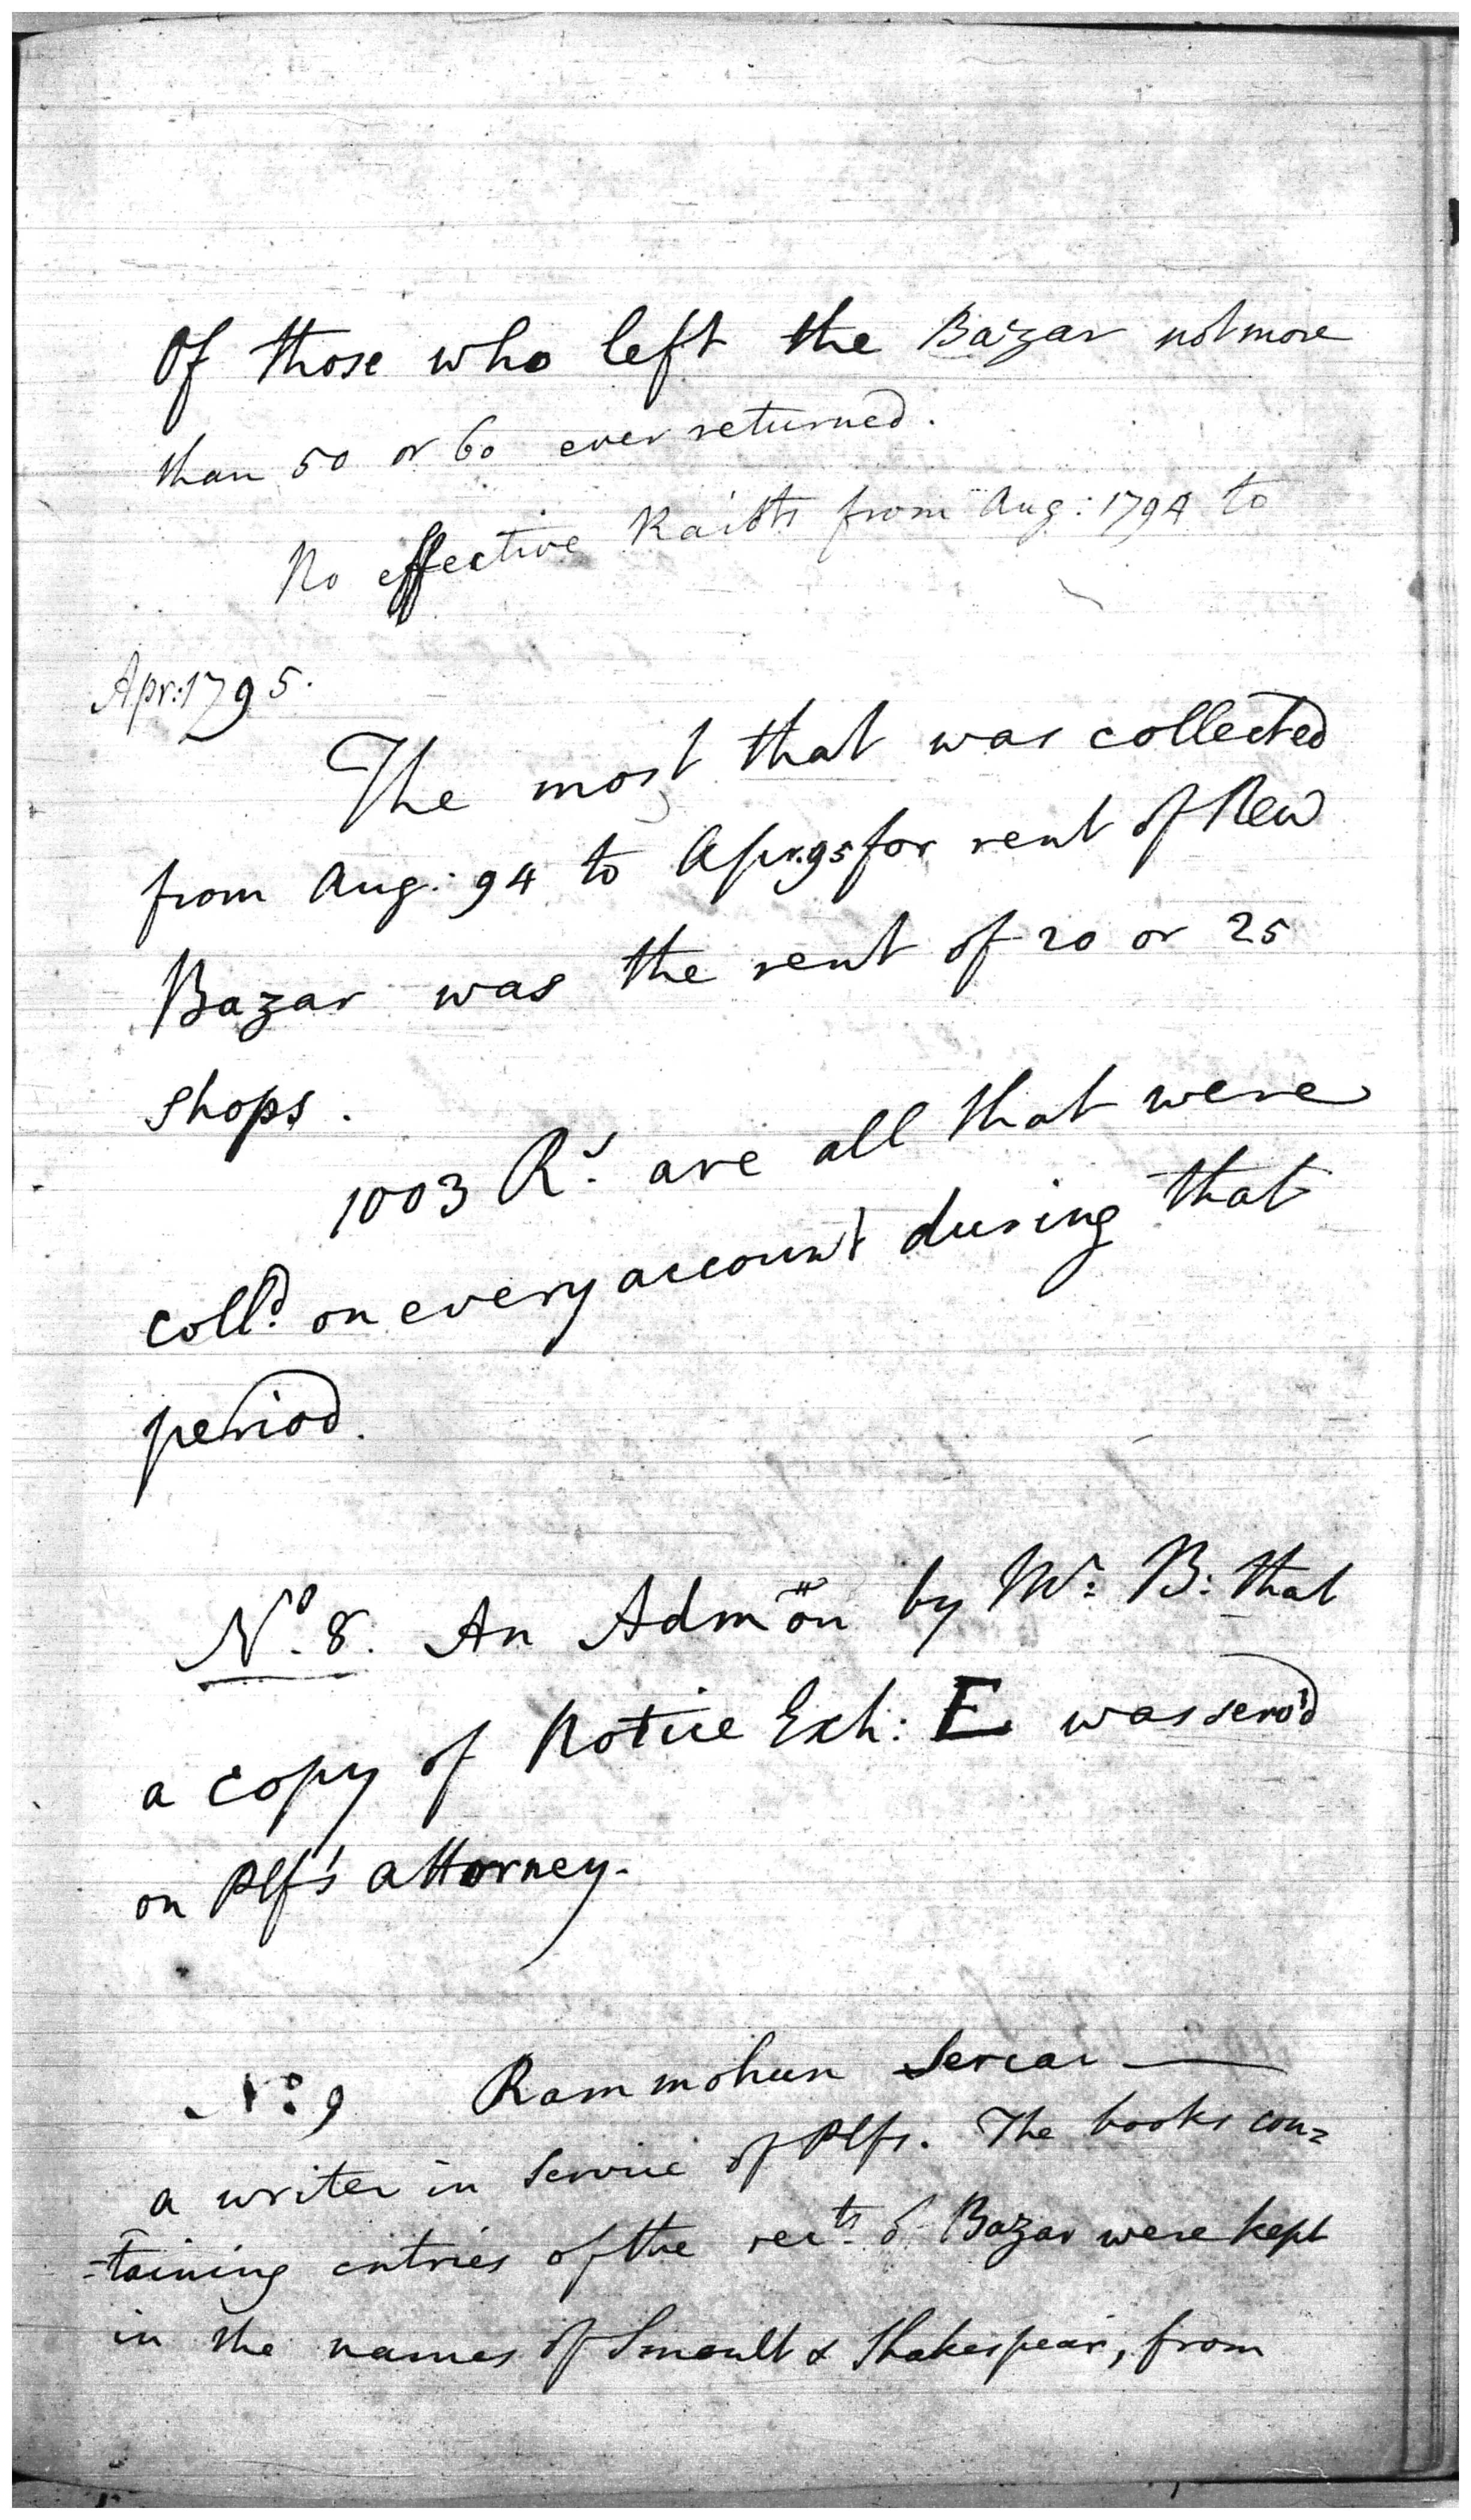 Of those who left the Bazar not more
than 50 or 60 ever returned.
No effective Kaists from Aug: 1794 to
Apr: 1795.
The most that was collected
from Aug: 94 to Apr. 95 for rent of New
Bazar was the rent of 20 or 25
shops.
1003 Rs. are all that were
colld. on every account during that
period.
No. 8. An Admon by Mr: B: that
a copy of Notice Exh: E was serv'd
on Plf's attorney.
No: 9 Rammohun Sercar —
a writer in Service of Plfs. The books con=
=taining entries of the rects. of Bazar were kept
in the names of Smoult & Shakespear, from